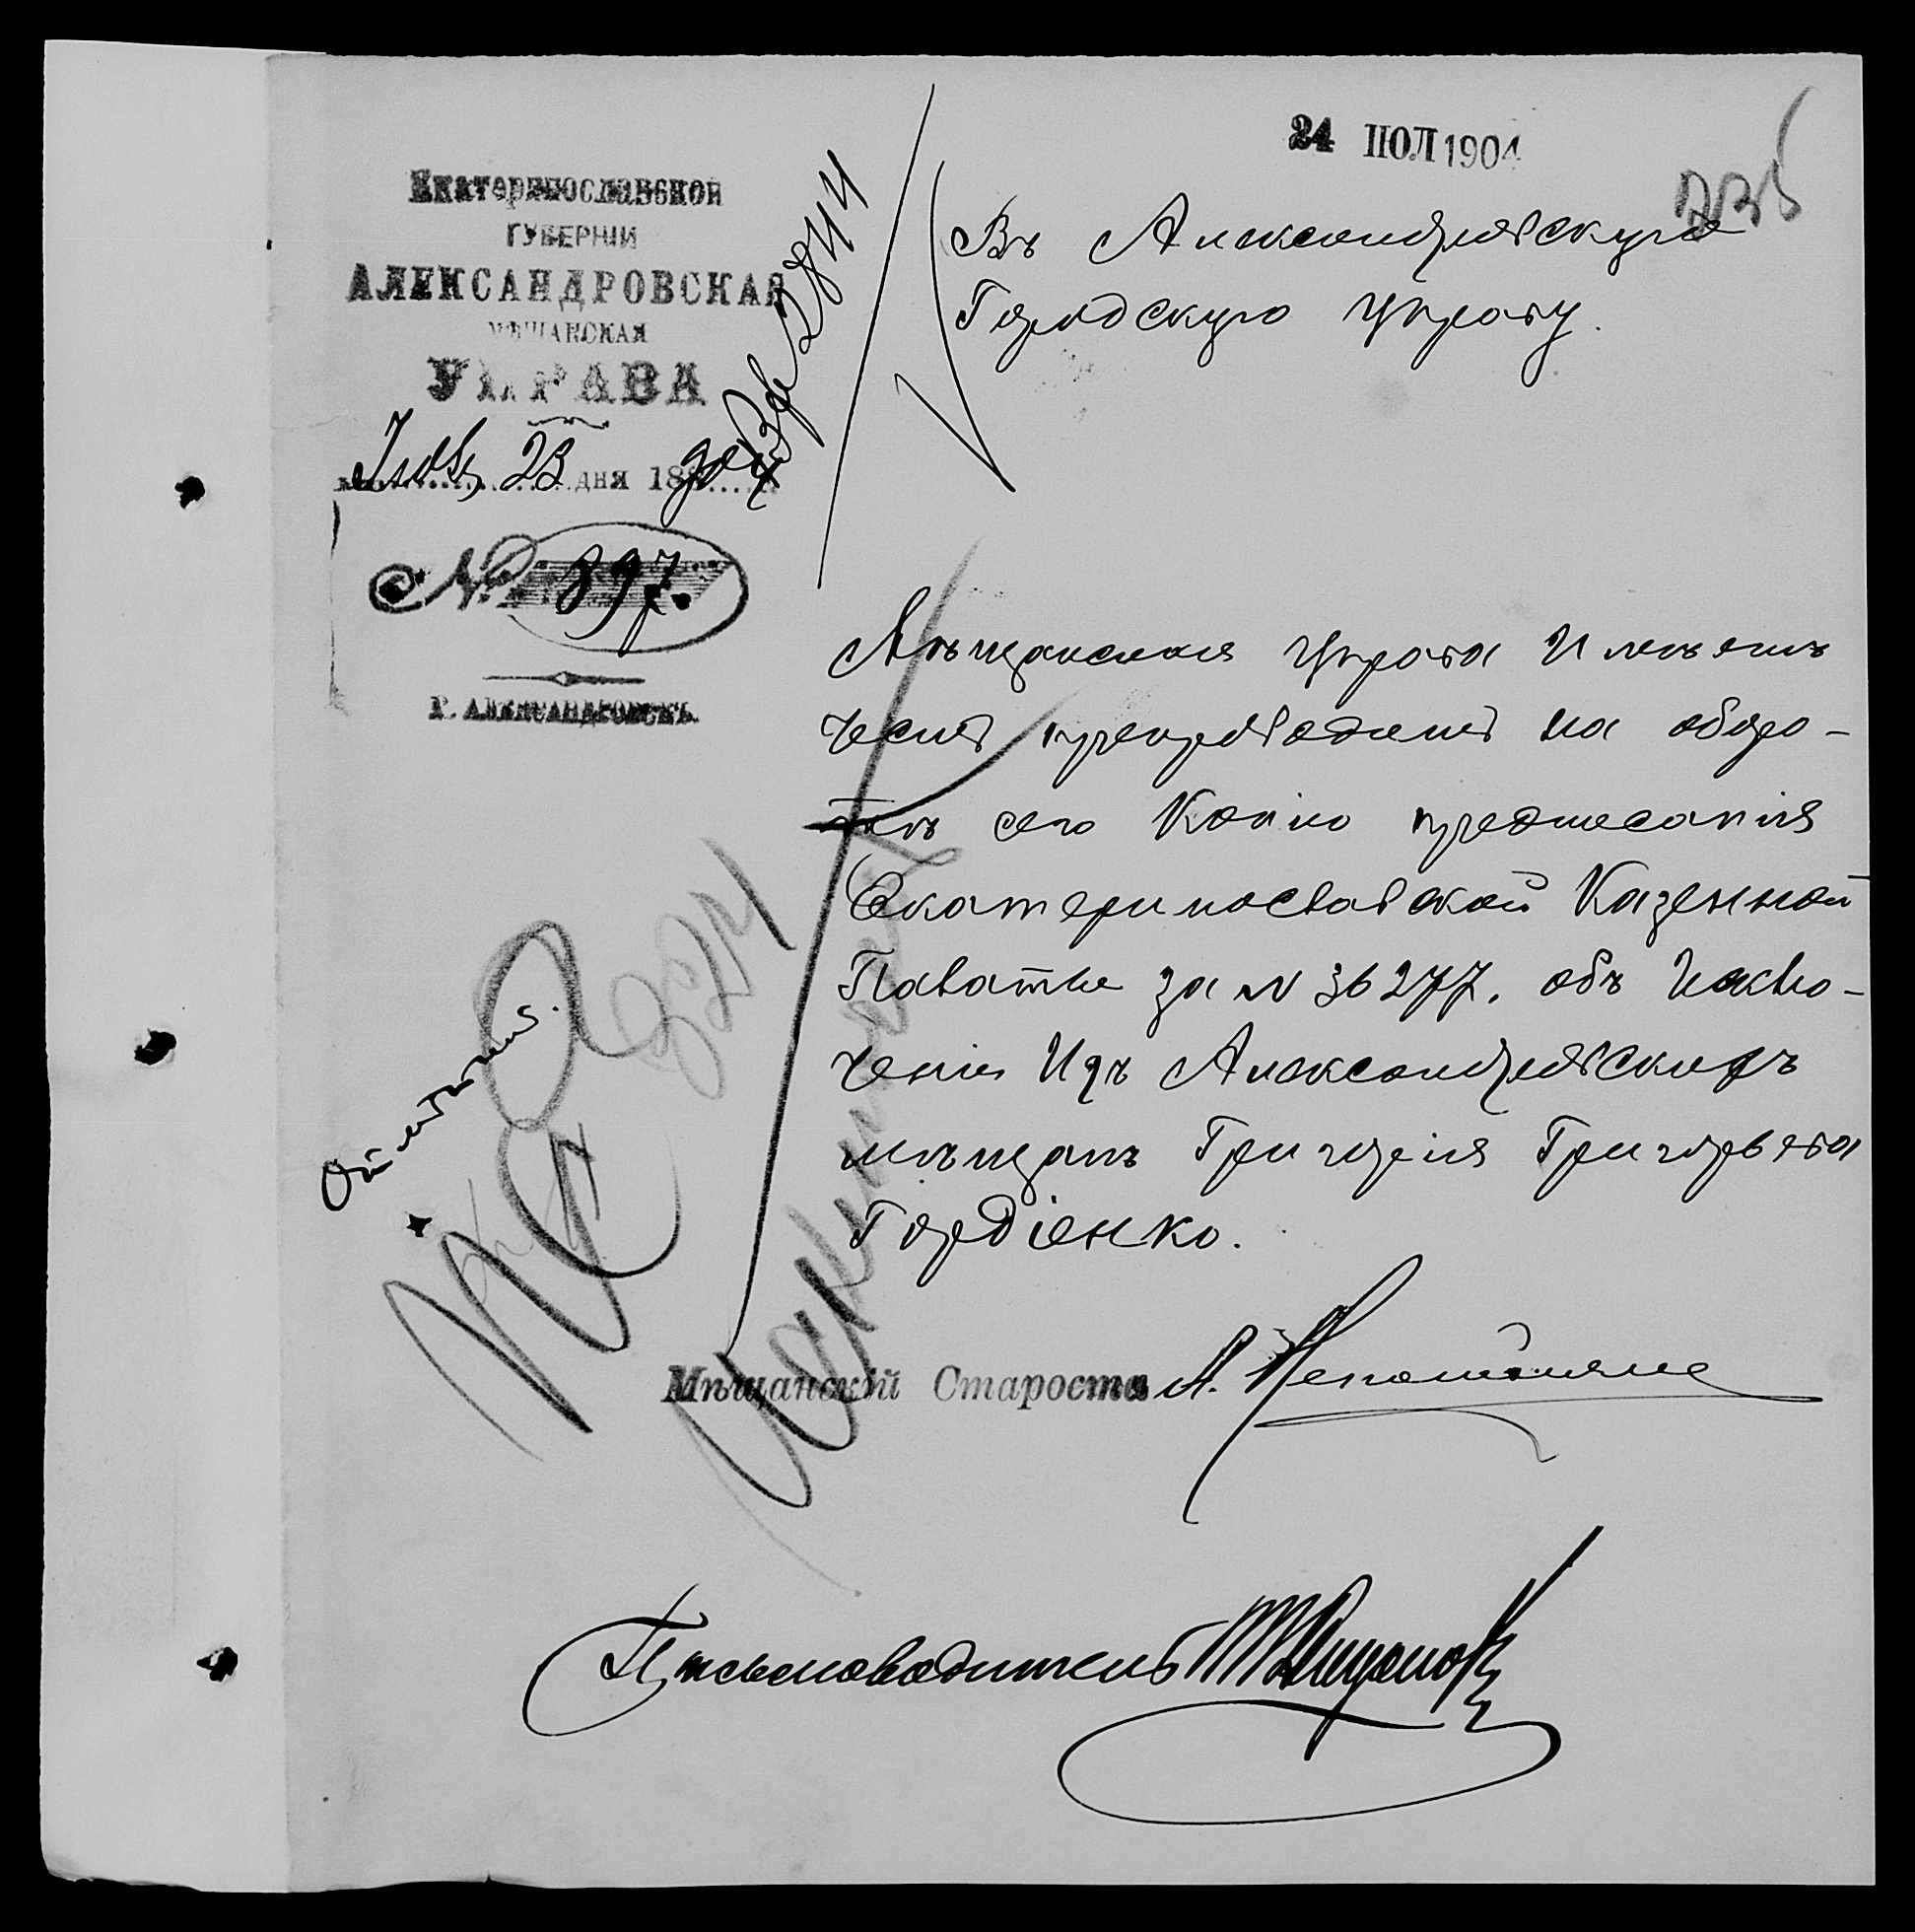 24 ІЮЛ 1904
Екатеринославской
ГУБЕРНІИ
АЛЕКСАНДРОВСКАЯ
МѢЩАНСКАЯ
УПРАВА
Іюля 23 дня 1904
№ 897.
Г. АЛЕКСАНДРОВСКЪ.
2844
Въ Александровскую
Городскую Управу.
Мѣщанская Управа Имѣетъ
честь препроводить на оборо-
тѣ сего Копію предписанія
Екатеринославской Казенной
Палаты за № 36277. объ Исклю-
ченіи Изъ Александровскихъ
мѣщанъ Григорія Григорьева
Гордіенко.
Мѣщанскій Староста
Письмоводитель